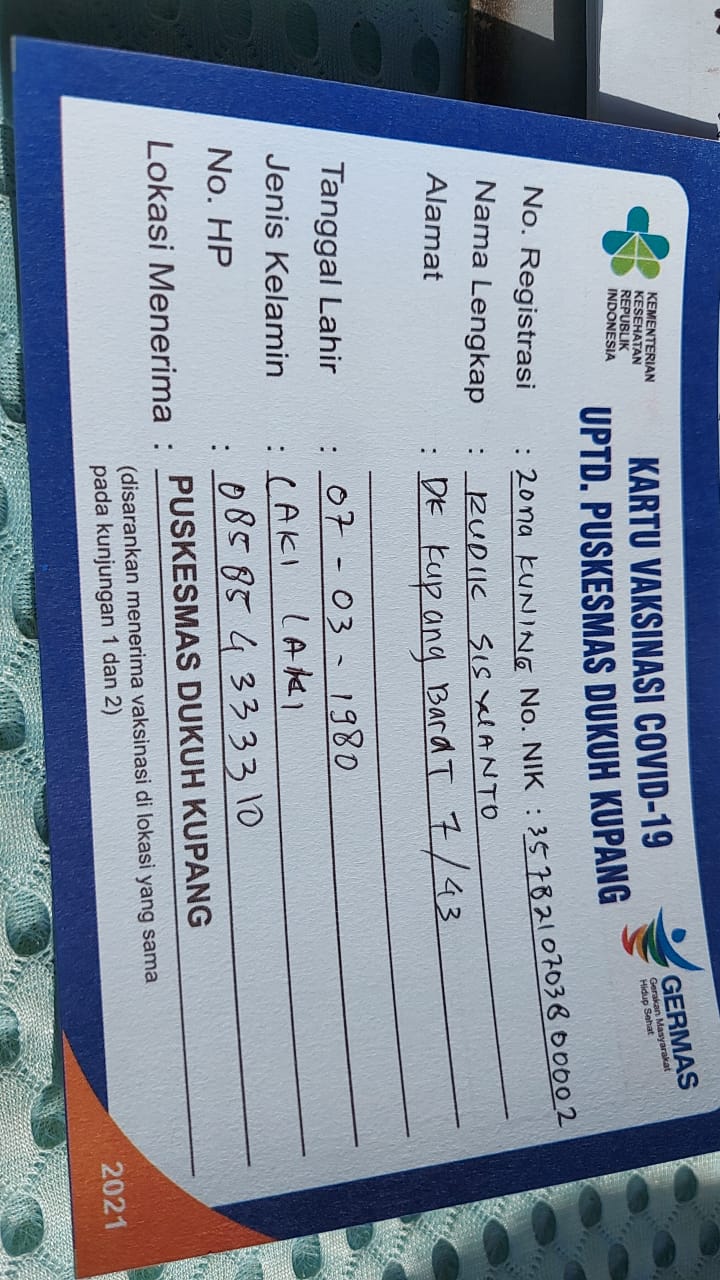 KEMENTERIAN
KESEHATAN
REPUBLIK
INDONESIA
KARTU VAKSINASI COVID-19
UPTD. PUSKESMAS DUKUH KUPANG
GERMAS
Gerakan Masyarakat
Hidup Sehat
No. Registrasi : Zona KUNING No. NIK : 3578210703800002
Nama Lengkap : RUDIK SISWANTO
Alamat : DK Kupang Barat 7/43
Tanggal Lahir : 07-03-1980
Jenis Kelamin : LAKI LAKI
No. HP : 085854333310
Lokasi Menerima : PUSKESMAS DUKUH KUPANG
(disarankan menerima vaksinasi di lokasi yang sama
pada kunjungan 1 dan 2)
2021